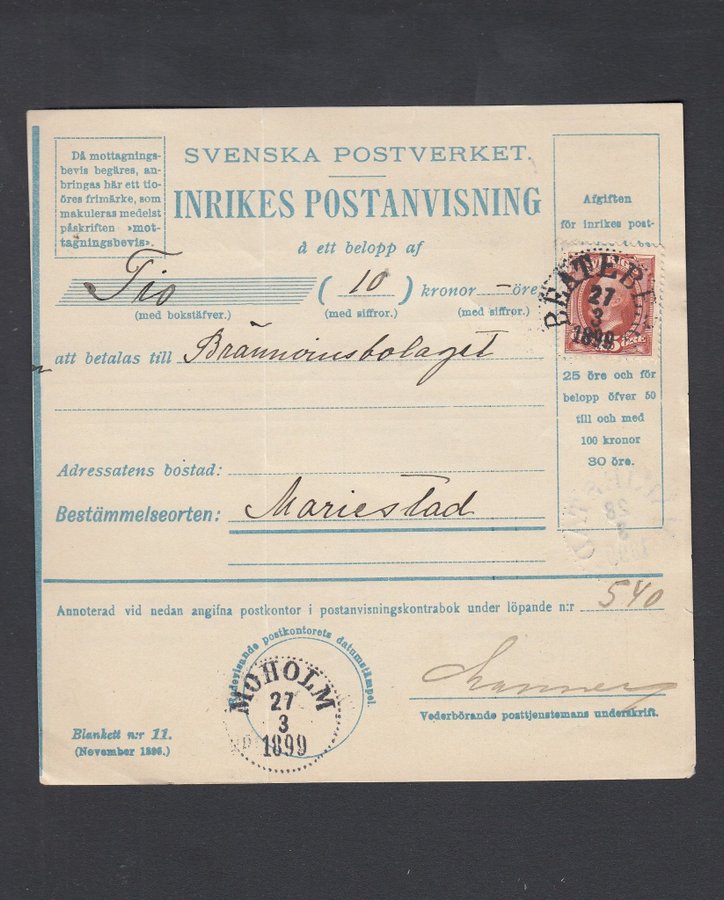 Då mottagnings-
bevis begäres, an-
bringas här ett tio-
öres frimärke, som
makuleras medelst
påskriften »mot-
tagningsbevis».
SVENSKA POSTVERKET.
INRIKES POSTANVISNING
å ett belopp af
Tio (10) kronor — öre
(med bokstäfver.) (med siffror.) (med siffror.)
att betalas till Brännvinsbolaget
Adressatens bostad:
Bestämmelseorten: Mariestad
Afgiften
för inrikes post-
BEATEBE
27
3
1899
25 öre och för
belopp öfver 50
till och med
100 kronor
30 öre.
28
3
Annoterad vid nedan angifna postkontor i postanvisningskontrabok under löpande n:r 540
Redovisande postkontorets datumstämpel.
MOHOLM
27
3
1899
Vederbörande posttjenstemans underskrift.
Blankett n:r 11.
(November 1896.)